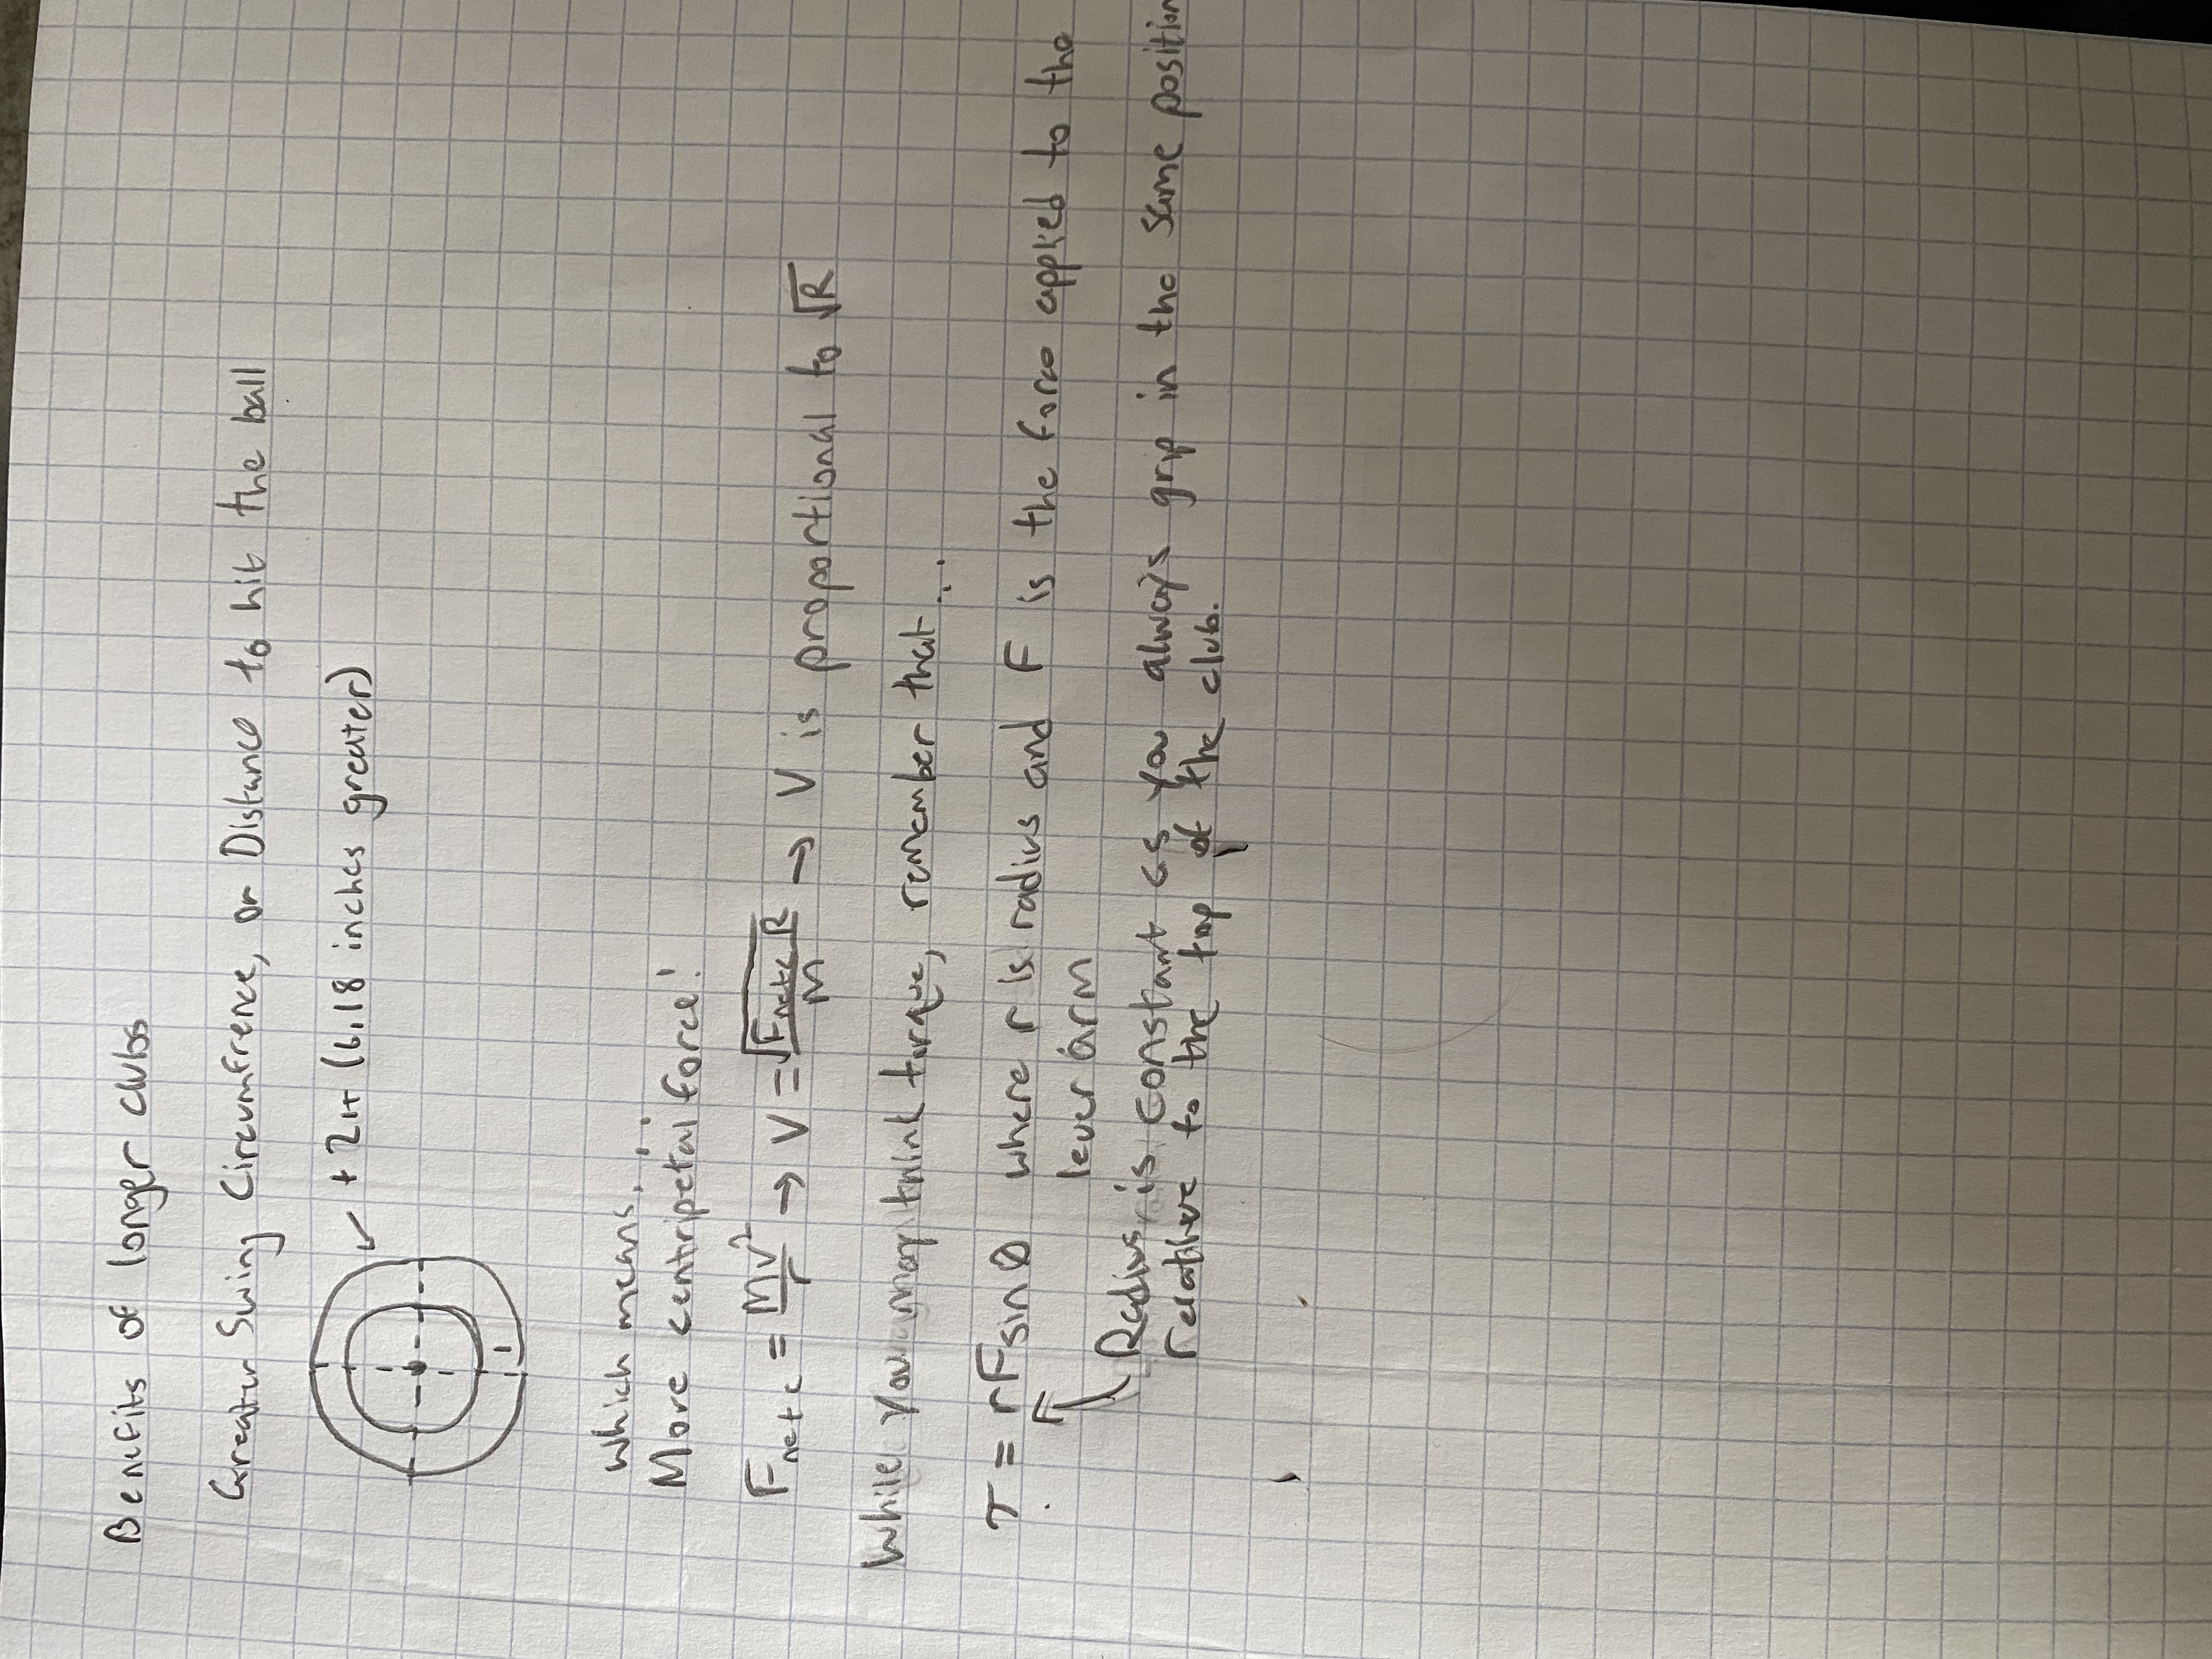 Benefits of longer clubs
Greater Swing Circumfrence, or Distance to hit the ball
+ 2π (6.18 inches greater)
1
which means....
More centripetal force!
Fnetc = mv²/r → V = √(Fnetc R)/m → V is proportional to √R
While you may think torque, remember that...
τ = rFsinθ where r is radius and F is the force applied to the
lever arm
Radius is constant as you always grip in the same position
relative to the top of the club.